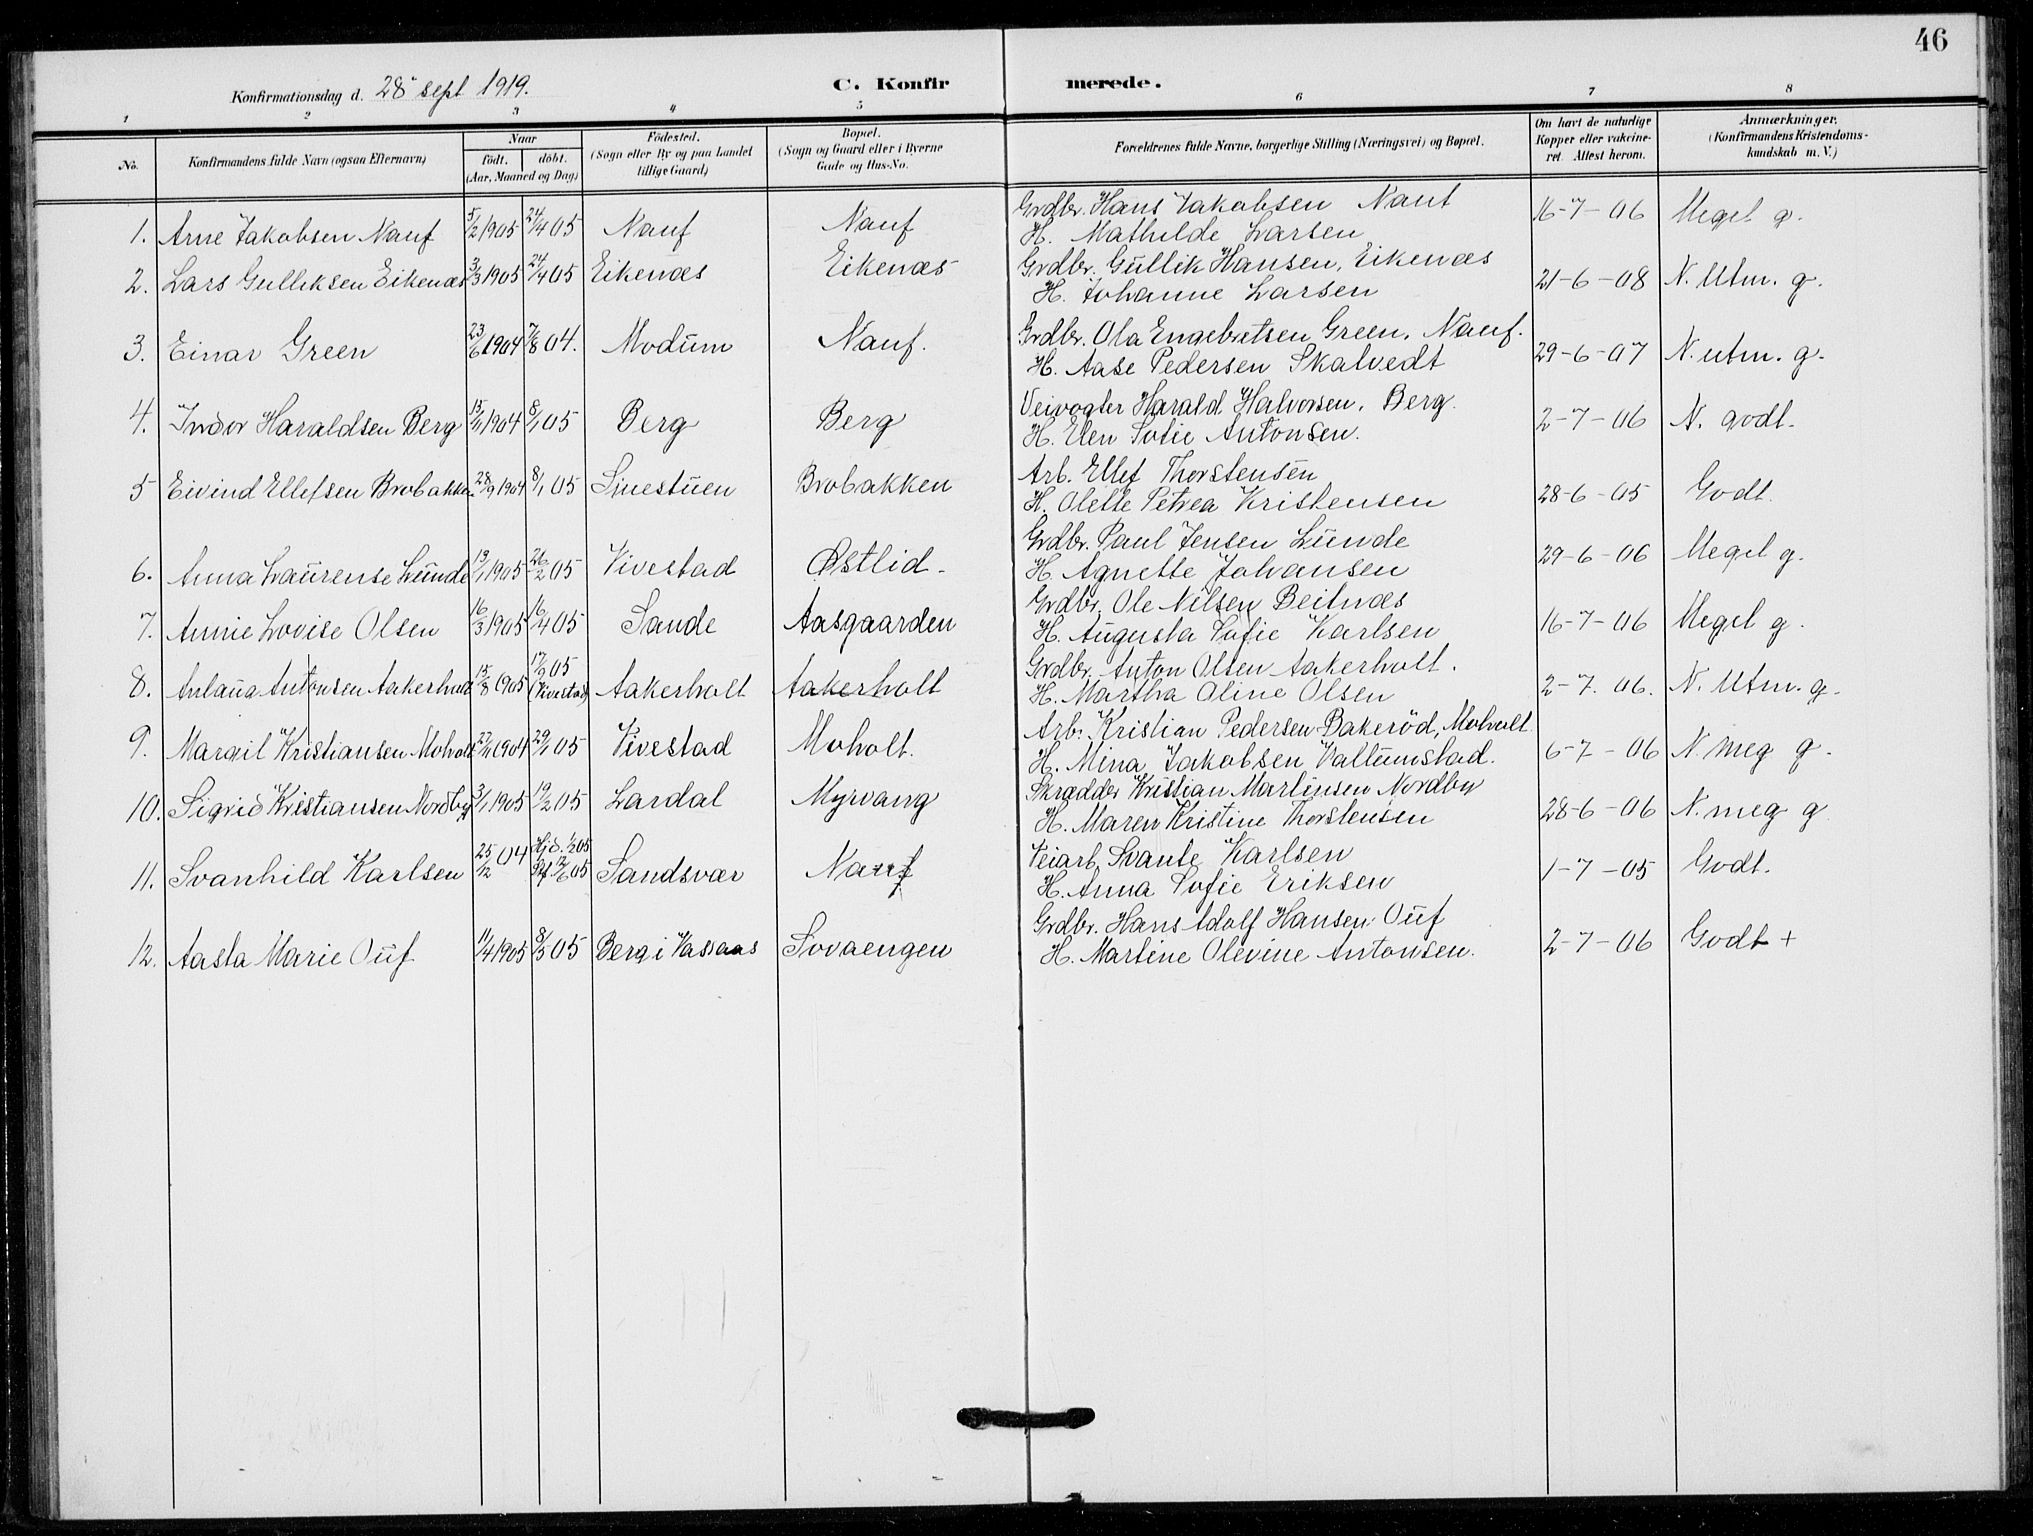 46
Konfirmationsdag d. 28 sept 1919. C. Konfir merede.
1 2 3 4 5 6 7 8
No. Konfirmandens fulde Navn (ogsaa Efternavn) Naar födt. döbt. (Aar, Maaned og Dag) Födested. (Sogn eller By og paa Landet tillige Gaard) Bopæl. (Sogn og Gaard eller i Byerne Gade og Hus-No. Forældrenes fulde Navne, borgerlige Stilling (Næringsvei) og Bopæl. Om havt de naturlige Kopper eller vakcineret. Attest herom. Anmærkninger. (Konfirmandens Kristendomskundskab m. V.)
1. Arne Jakobsen Nauf 5/2 1905 24/4 05 Nauf Nauf Grdbr. Hans Jakobsen Nauf 16-7-06 Meget g.
H. Mathilde Larsen
2. Lars Gulliksen Eikenæs 3/3 1905 24/4 05 Eikenæs Eikenæs Grdbr. Gullik Hansen, Eikenæs 21-6-08 N. Utm. g.
H. Johanne Larsen
3. Einar Green 23/6 1904 7/8 04. Modum Nauf. Grdbr. Ola Engebretsen Green, Nauf. 29-6-07 N. utm. g.
H. Aase Pedersen Skalvedt
4. Indor Haraldsen Berg 15/11 1904 8/1 05 Berg Berg Veivogter Harald Halvorsen, Berg. 2-7-06 N. godt.
H. Elen Sofie Antonsen.
5 Eivind Ellefsen Brobakken 28/9 1904 8/1 05 Sinestuen Brobakken Arb. Ellef Thorstensen 28-6-05 Godt.
H. Olette Petrea Kristensen
6. Anna Laurense Lunde 19/1 1905 26/2 05 Vivestad Østlid. Grdbr. Paul Jensen Lunde 29-6-06 Meget g.
H. Agnette Johansen
7. Annie Lovise Olsen 16/3 1905 16/4 05 Sande Aasgaarden Grdbr. Ole Nilsen Beitnæs 16-7-06 Meget g.
H. Augusta Sofie Karlsen
8. Antonsen Aakerholt 15/8 1905 17/9 05 (Vivestad) Aakerholt Aakerholt Grdbr. Anton Olsen Aakerholt. 2-7. 06. N. Utm. g.
H. Martha Oline Olsen
9. Margit Kristiansen Moholt 27/11 1904 29/1 05 Vivestad Moholt. Arb. Kristian Pedersen Bakeröd, Moholt. 6-7-06 N. meg g.
H. Mina Jakobsen Vallumstad.
10. Sigrid Kristiansen Nordby 3/1 1905 19/2 05 Lardal Myrvang Skrædder Kristian Martinsen Nordby 28-6-06 N. meg g
H. Maren Kristine Thorstensen
11. Svanhild Karlsen 25/12 04 Hjd. 1/2 05 05 Sandsvær Nauf Veiarb. Svante Karlsen 1-7-05 Godt.
H. Anna Sofie Eriksen
12. Aasta Marie Ouf 11/4 1905 8/5 05 Berg i Vassaas Svvaengen Grdbr. Hans Adolf Hansen Ouf 2-7-06 Godt +
H. Martine Olevine Antonsen.